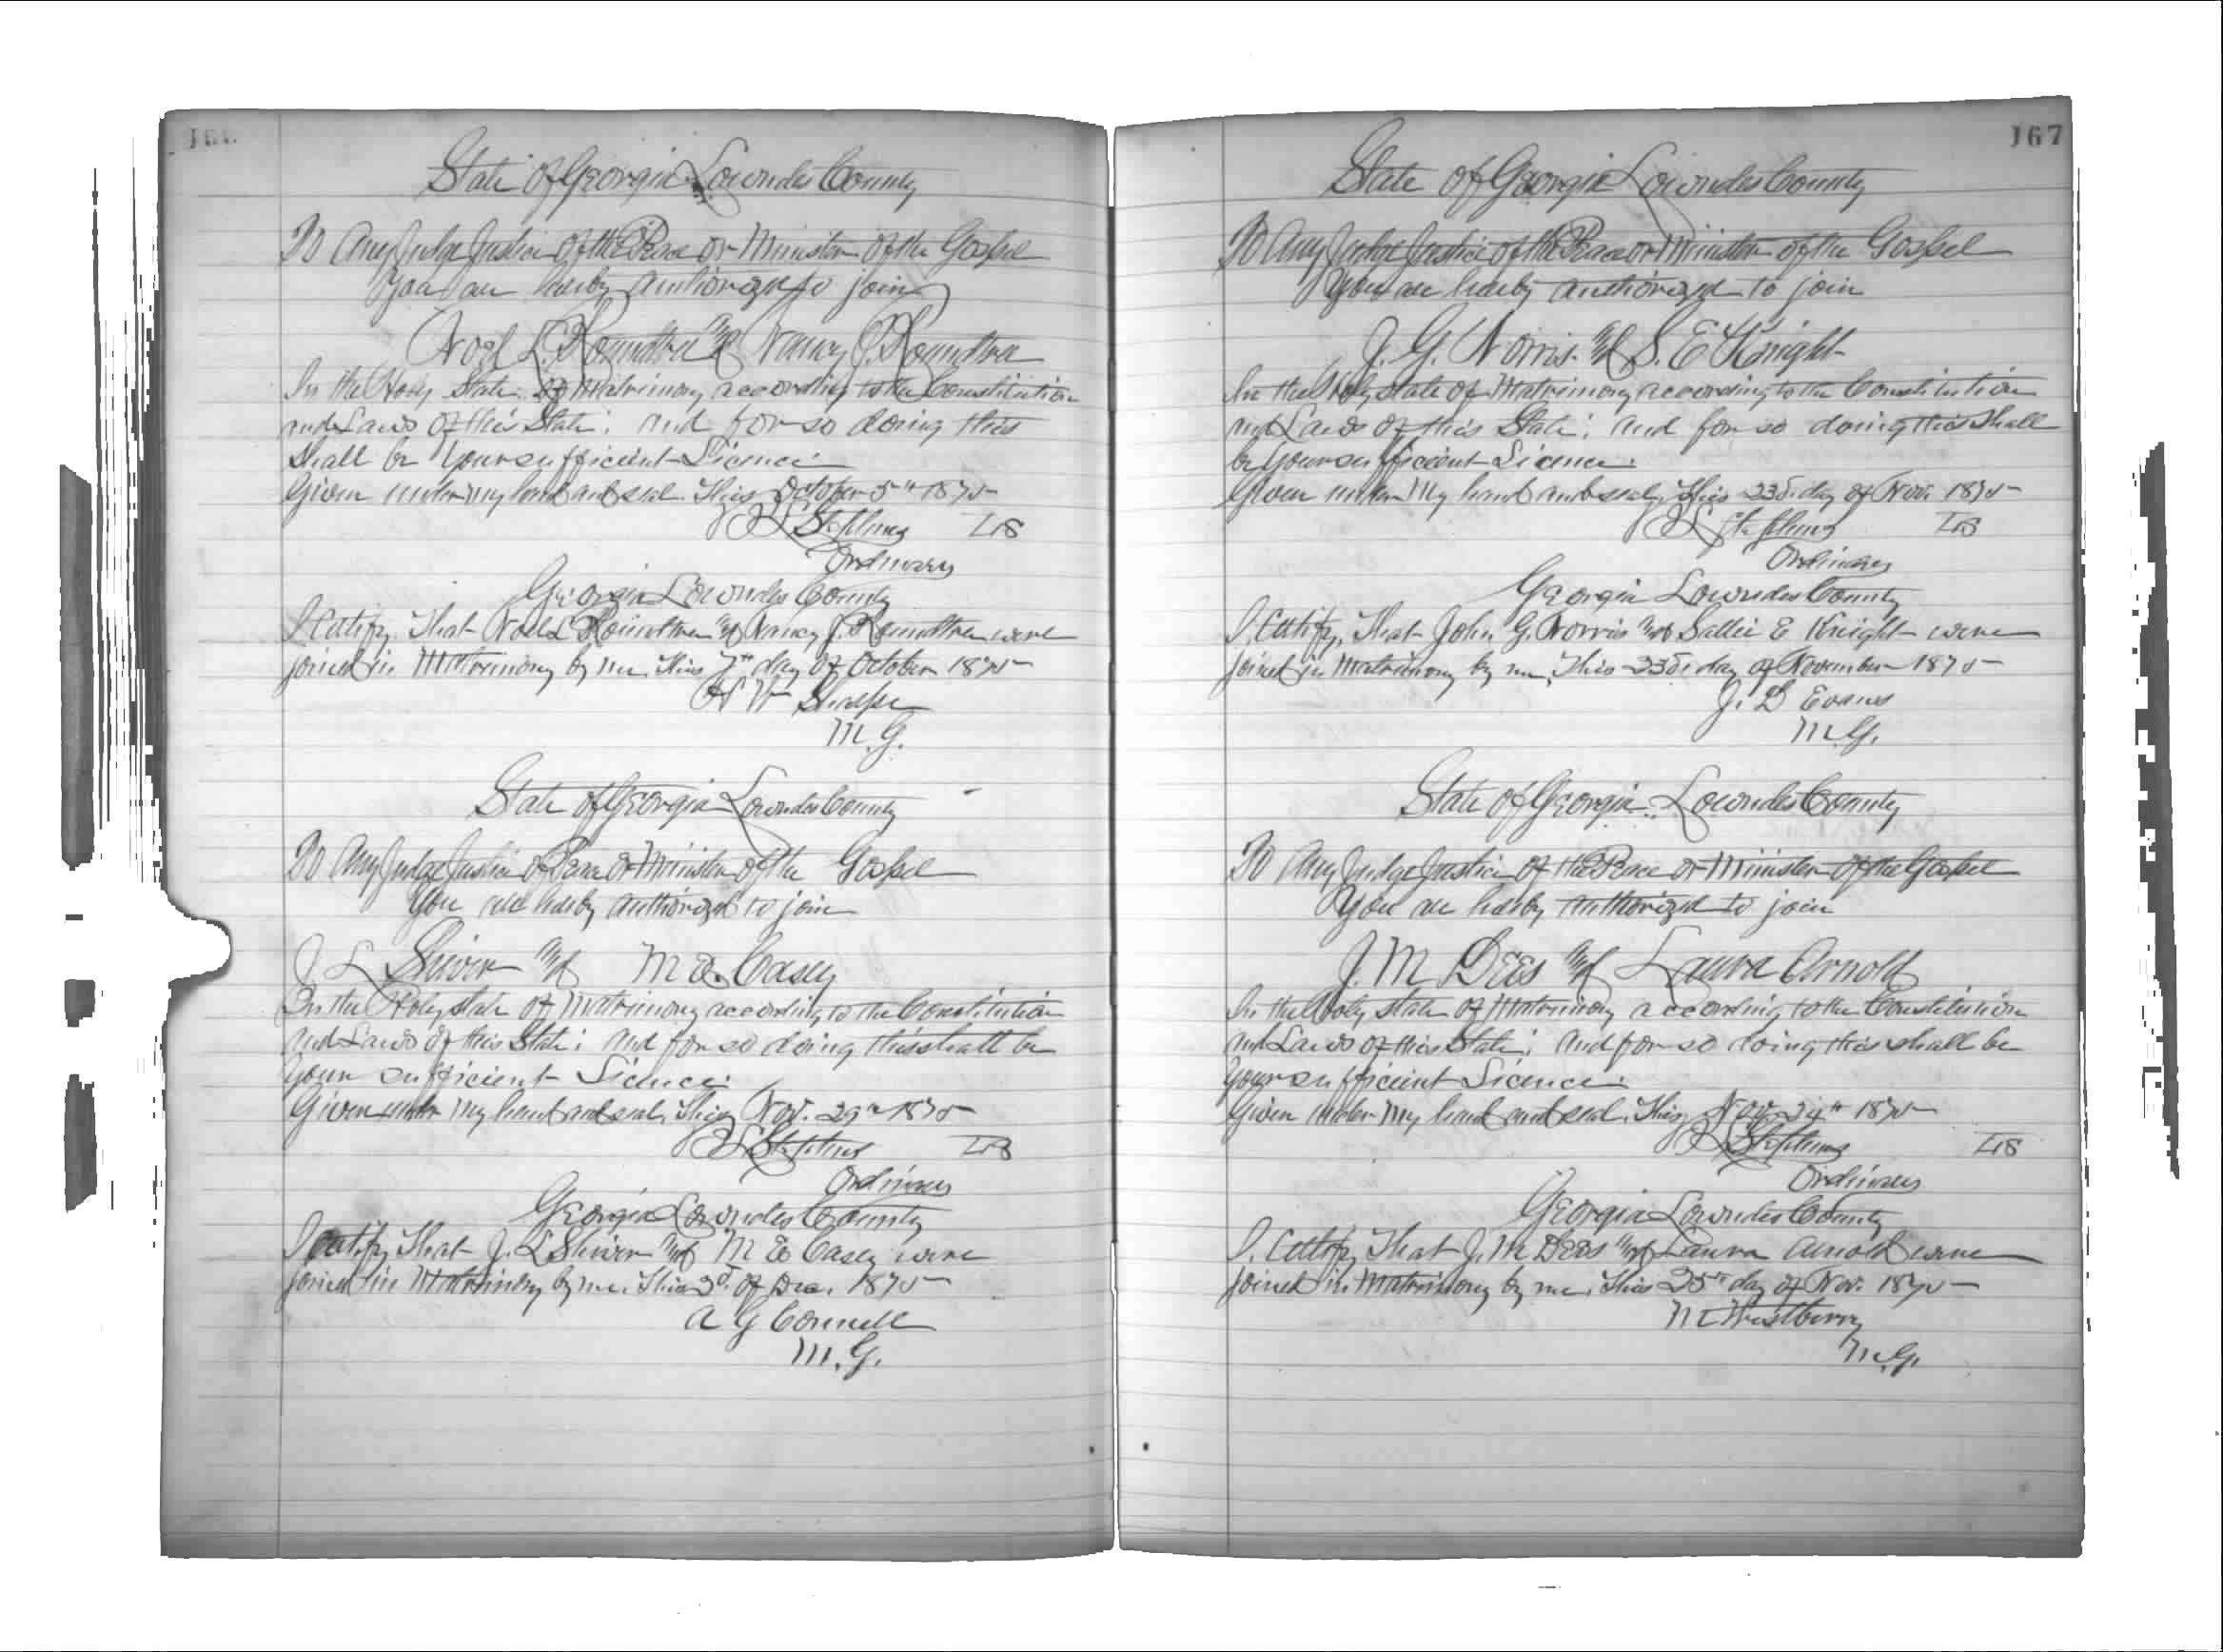 State of Georgia Lowndes County
To Any Judge Justice of the Peace or Minister of the Gospel
You are hereby authorized to join
Noel L. Roundtree and Nancy J. Roundtree
In the Holy State of Matrimony according to the Constitution
and Laws of this State: and for so doing this
shall be your sufficient Licence:
Given under my hand and seal this October 5th 1875
Stephens LS
Ordinary
Georgia Lowndes County
I Certify That Noel L Roundtree and Nancy J. Roundtree were
joined in Matrimony by me, this 7th day of October 1875
H W Sharpe
M. G.
State of Georgia Lowndes County
To Any Judge Justice of Peace or Minister of the Gospel
You are hereby authorized to join
J L Shiver and M E. Casey
In the Holy state of Matrimony according to the Constitution
and Laws of this State: and for so doing this shall be
your sufficient Licence:
Given under my hand and seal, this Nov. 29th 1875
Stephens LS
Ordinary
Georgia Lowndes County
I Certify That J. L Shiver and M E Casey were
joined in Matrimony by me, this 2d. of Dec. 1875
A G Connell
M. G.
167
State of Georgia Lowndes County
To Any Judge Justice of the Peace or Minister of the Gospel
You are hereby authorized to join
J. G. Norris and S. E Knight
In the Holy state of Matrimony according to the Constitution
and Laws of this State: and for so doing this shall
be your sufficient Licence:
Given under my hand and seal, this 23d. day of Nov. 1875
Stephens LS
Ordinary
Georgia Lowndes County
I. Certify, That John G. Norris and Sallie E Knight were
joined in Matrimony by me, this 23d. day of November 1875
J. D Evans
M. G.
State of Georgia Lowndes County
To Any Judge Justice of the Peace or Minister of the Gospel
You are hereby authorized to join
J. M Dees and Laura Arnold
In the Holy state of Matrimony according to the Constitution
and Laws of this State: and for so doing this shall be
your sufficient Licence:
Given under my hand and seal. this Nov 24th 1875
Stephens LS
Ordinary
Georgia Lowndes County
I. Certify That J. M Dees and Laura Arnold were
joined in Matrimony by me, this 25th day of Nov. 1875
Westberry
M. G.